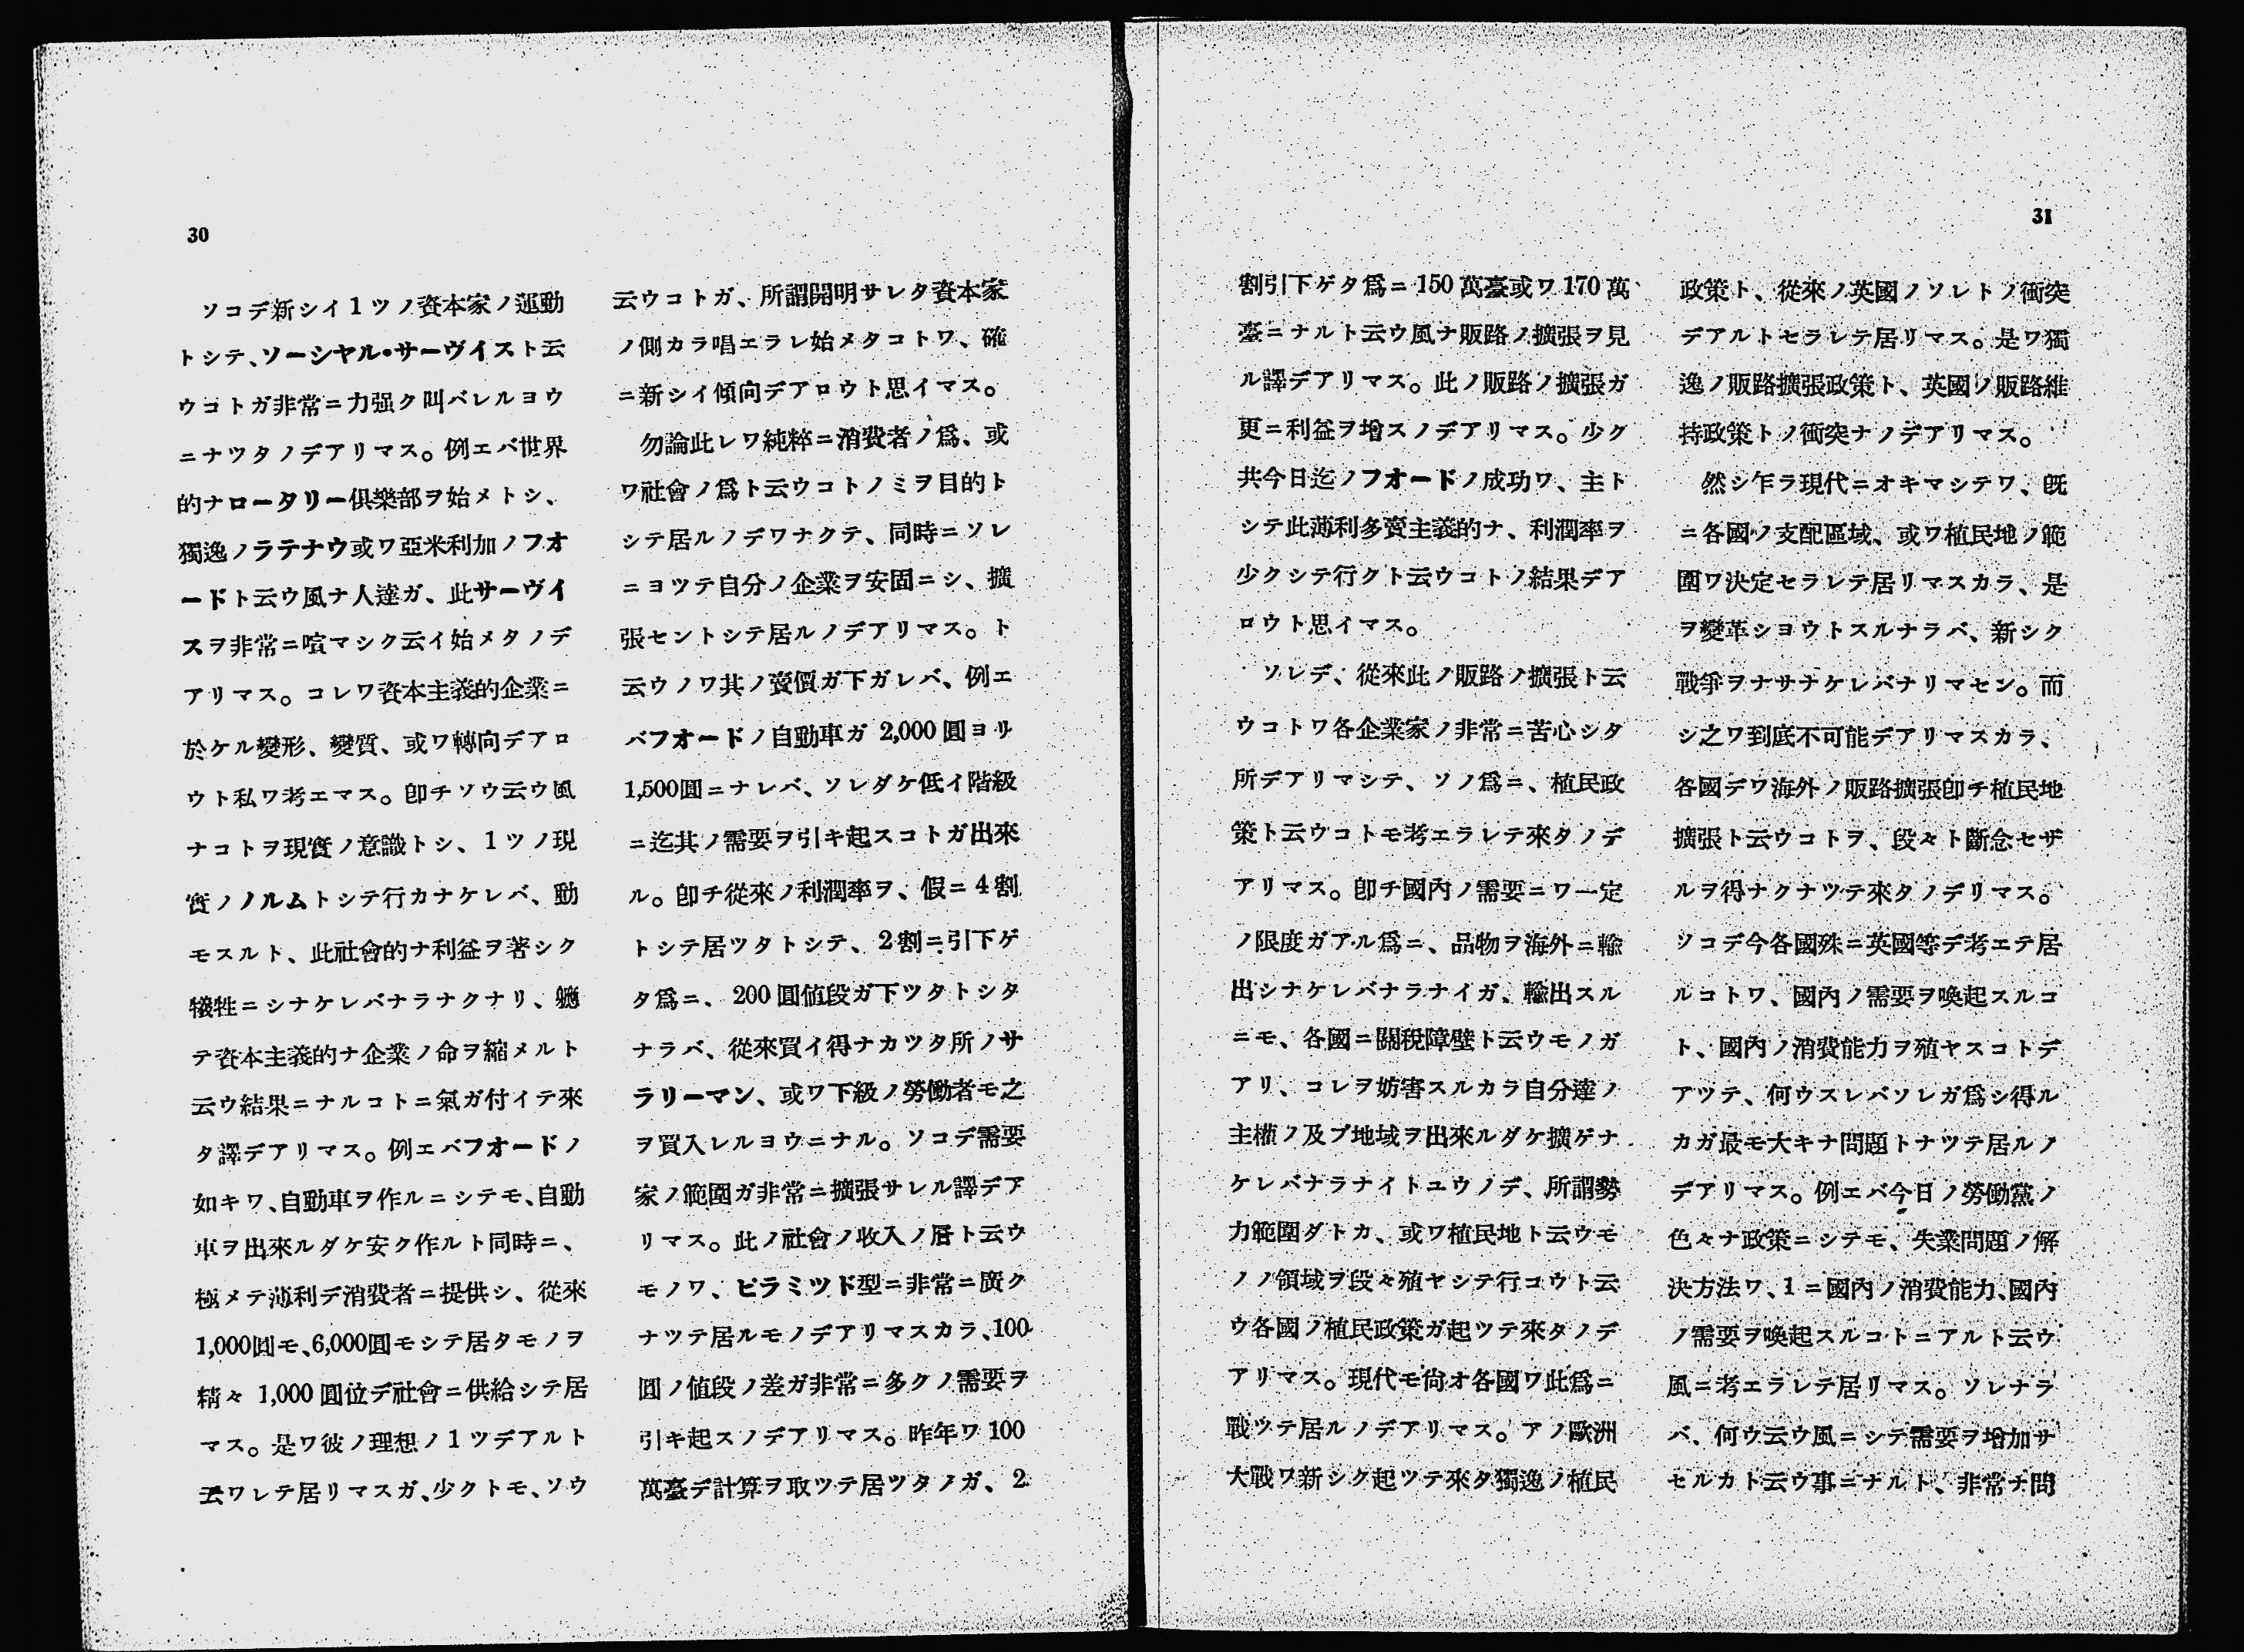 30
ソコデ新シイ1ツノ資本家ノ運動
トシテ、ソーシヤル・サーヴイスト云
ウコトガ非常ニ力强ク叫バレルヨウ
ニナツタノデアリマス。例エバ世界
的ナロータリー倶樂部ヲ始メトシ、
獨逸ノラテナウ或ワ亞米利加ノフオ
ードト云ウ風ナ人達ガ、此サーヴイ
スヲ非常ニ喧マシク云イ始メタノデ
アリマス。コレワ資本主義的企業ニ
於ケル變形、變質、或ワ轉向デアロ
ウト私ワ考エマス。卽チソウ云ウ風
ナコトヲ現實ノ意識トシ、1ツノ現
實ノノルムトシテ行カナケレバ、動
モスルト、此社會的ナ利益ヲ著シク
犧牲ニシナケレバナラナクナリ、軈
テ資本主義的ナ企業ノ命ヲ縮メルト
云ウ結果ニナルコトニ氣ガ付イテ來
タ譯デアリマス。例エバフオードノ
如キワ、自動車ヲ作ルニシテモ、自動
車ヲ出來ルダケ安ク作ルト同時ニ、
極メテ薄利デ消費者ニ提供シ、從來
1,000圓モ、6,000圓モシテ居タモノヲ
精々 1,000 圓位デ社會ニ供給シテ居
マス。是ワ彼ノ理想ノ1ツデアルト
云ワレテ居リマスガ、少クトモ、ソウ
云ウコトガ、所謂開明サレタ資本家
ノ側カラ唱エラレ始メタコトワ、確
ニ新シイ傾向デアロウト思イマス。
勿論此レワ純粹ニ消費者ノ爲、或
ワ社會ノ爲ト云ウコトノミヲ目的ト
シテ居ルノデワナクテ、同時ニソレ
ニヨツテ自分ノ企業ヲ安固ニシ、擴
張セントシテ居ルノデアリマス。ト
云ウノワ其ノ賣價ガ下ガレバ、例エ
バフオードノ自動車ガ 2,000 圓ヨリ
1,500圓ニナレバ、ソレダケ低イ階級
ニ迄其ノ需要ヲ引キ起スコトガ出來
ル。卽チ從來ノ利潤率ヲ、假ニ4割
トシテ居ツタトシテ、2割ニ引下ゲ
タ爲ニ、200 圓値段ガ下ツタトシタ
ナラバ、從來買イ得ナカツタ所ノサ
ラリーマン、或ワ下級ノ勞働者モ之
ヲ買入レルヨウニナル。ソコデ需要
家ノ範圍ガ非常ニ擴張サレル譯デア
リマス。此ノ社會ノ收入ノ層ト云ウ
モノワ、ピラミツド型ニ非常ニ廣ク
ナツテ居ルモノデアリマスカラ、100
圓ノ値段ノ差ガ非常ニ多クノ需要ヲ
引キ起スノデアリマス。昨年ワ 100
萬臺デ計算ヲ取ツテ居ツタノガ、2
31
割引下ゲタ爲ニ 150 萬臺或ワ 170 萬
臺ニナルト云ウ風ナ販路ノ擴張ヲ見
ル譯デアリマス。此ノ販路ノ擴張ガ
更ニ利益ヲ增スノデアリマス。少ク
共今日迄ノフオードノ成功ワ、主ト
シテ此薄利多賣主義的ナ、利潤率ヲ
少クシテ行クト云ウコトノ結果デア
ロウト思イマス。
ソレデ、從來此ノ販路ノ擴張ト云
ウコトワ各企業家ノ非常ニ苦心シタ
所デアリマシテ、ソノ爲ニ、植民政
策ト云ウコトモ考エラレテ來タノデ
アリマス。卽チ國內ノ需要ニワ一定
ノ限度ガアル爲ニ、品物ヲ海外ニ輸
出シナケレバナラナイガ、輸出スル
ニモ、各國ニ關稅障壁ト云ウモノガ
アリ、コレヲ妨害スルカラ自分達ノ
主權ノ及ブ地域ヲ出來ルダケ擴ゲナ
ケレバナラナイトユウノデ、所謂勢
力範圍ダトカ、或ワ植民地ト云ウモ
ノノ領域ヲ段々殖ヤシテ行コウト云
ウ各國ノ植民政策ガ起ツテ來タノデ
アリマス。現代モ尙オ各國ワ此爲ニ
戰ツテ居ルノデアリマス。アノ歐洲
大戰ワ新シク起ツテ來タ獨逸ノ植民
政策ト、從來ノ英國ノソレトノ衝突
デアルトセラレテ居リマス。是ワ獨
逸ノ販路擴張政策ト、英國ノ販路維
持政策トノ衝突ナノデアリマス。
然シ乍ラ現代ニオキマシテワ、旣
ニ各國ノ支配區域、或ワ植民地ノ範
圍ワ決定セラレテ居リマスカラ、是
ヲ變革シヨウトスルナラバ、新シク
戰爭ヲナサナケレバナリマセン。而
シ之ワ到底不可能デアリマスカラ、
各國デワ海外ノ販路擴張卽チ植民地
擴張ト云ウコトヲ、段々ト斷念セザ
ルヲ得ナクナツテ來タノデリマス。
ソコデ今各國殊ニ英國等デ考エテ居
ルコトワ、國內ノ需要ヲ喚起スルコ
ト、國內ノ消費能力ヲ殖ヤスコトデ
アツテ、何ウスレバソレガ爲シ得ル
カガ最モ大キナ問題トナツテ居ルノ
デアリマス。例エバ今日ノ勞働黨ノ
色々ナ政策ニシテモ、失業問題ノ解
決方法ワ、1ニ國內ノ消費能力、國內
ノ需要ヲ喚起スルコトニアルト云ウ
風ニ考エラレテ居リマス。ソレナラ
バ、何ウ云ウ風ニシテ需要ヲ增加サ
セルカト云ウ事ニナルト、非常ナ問